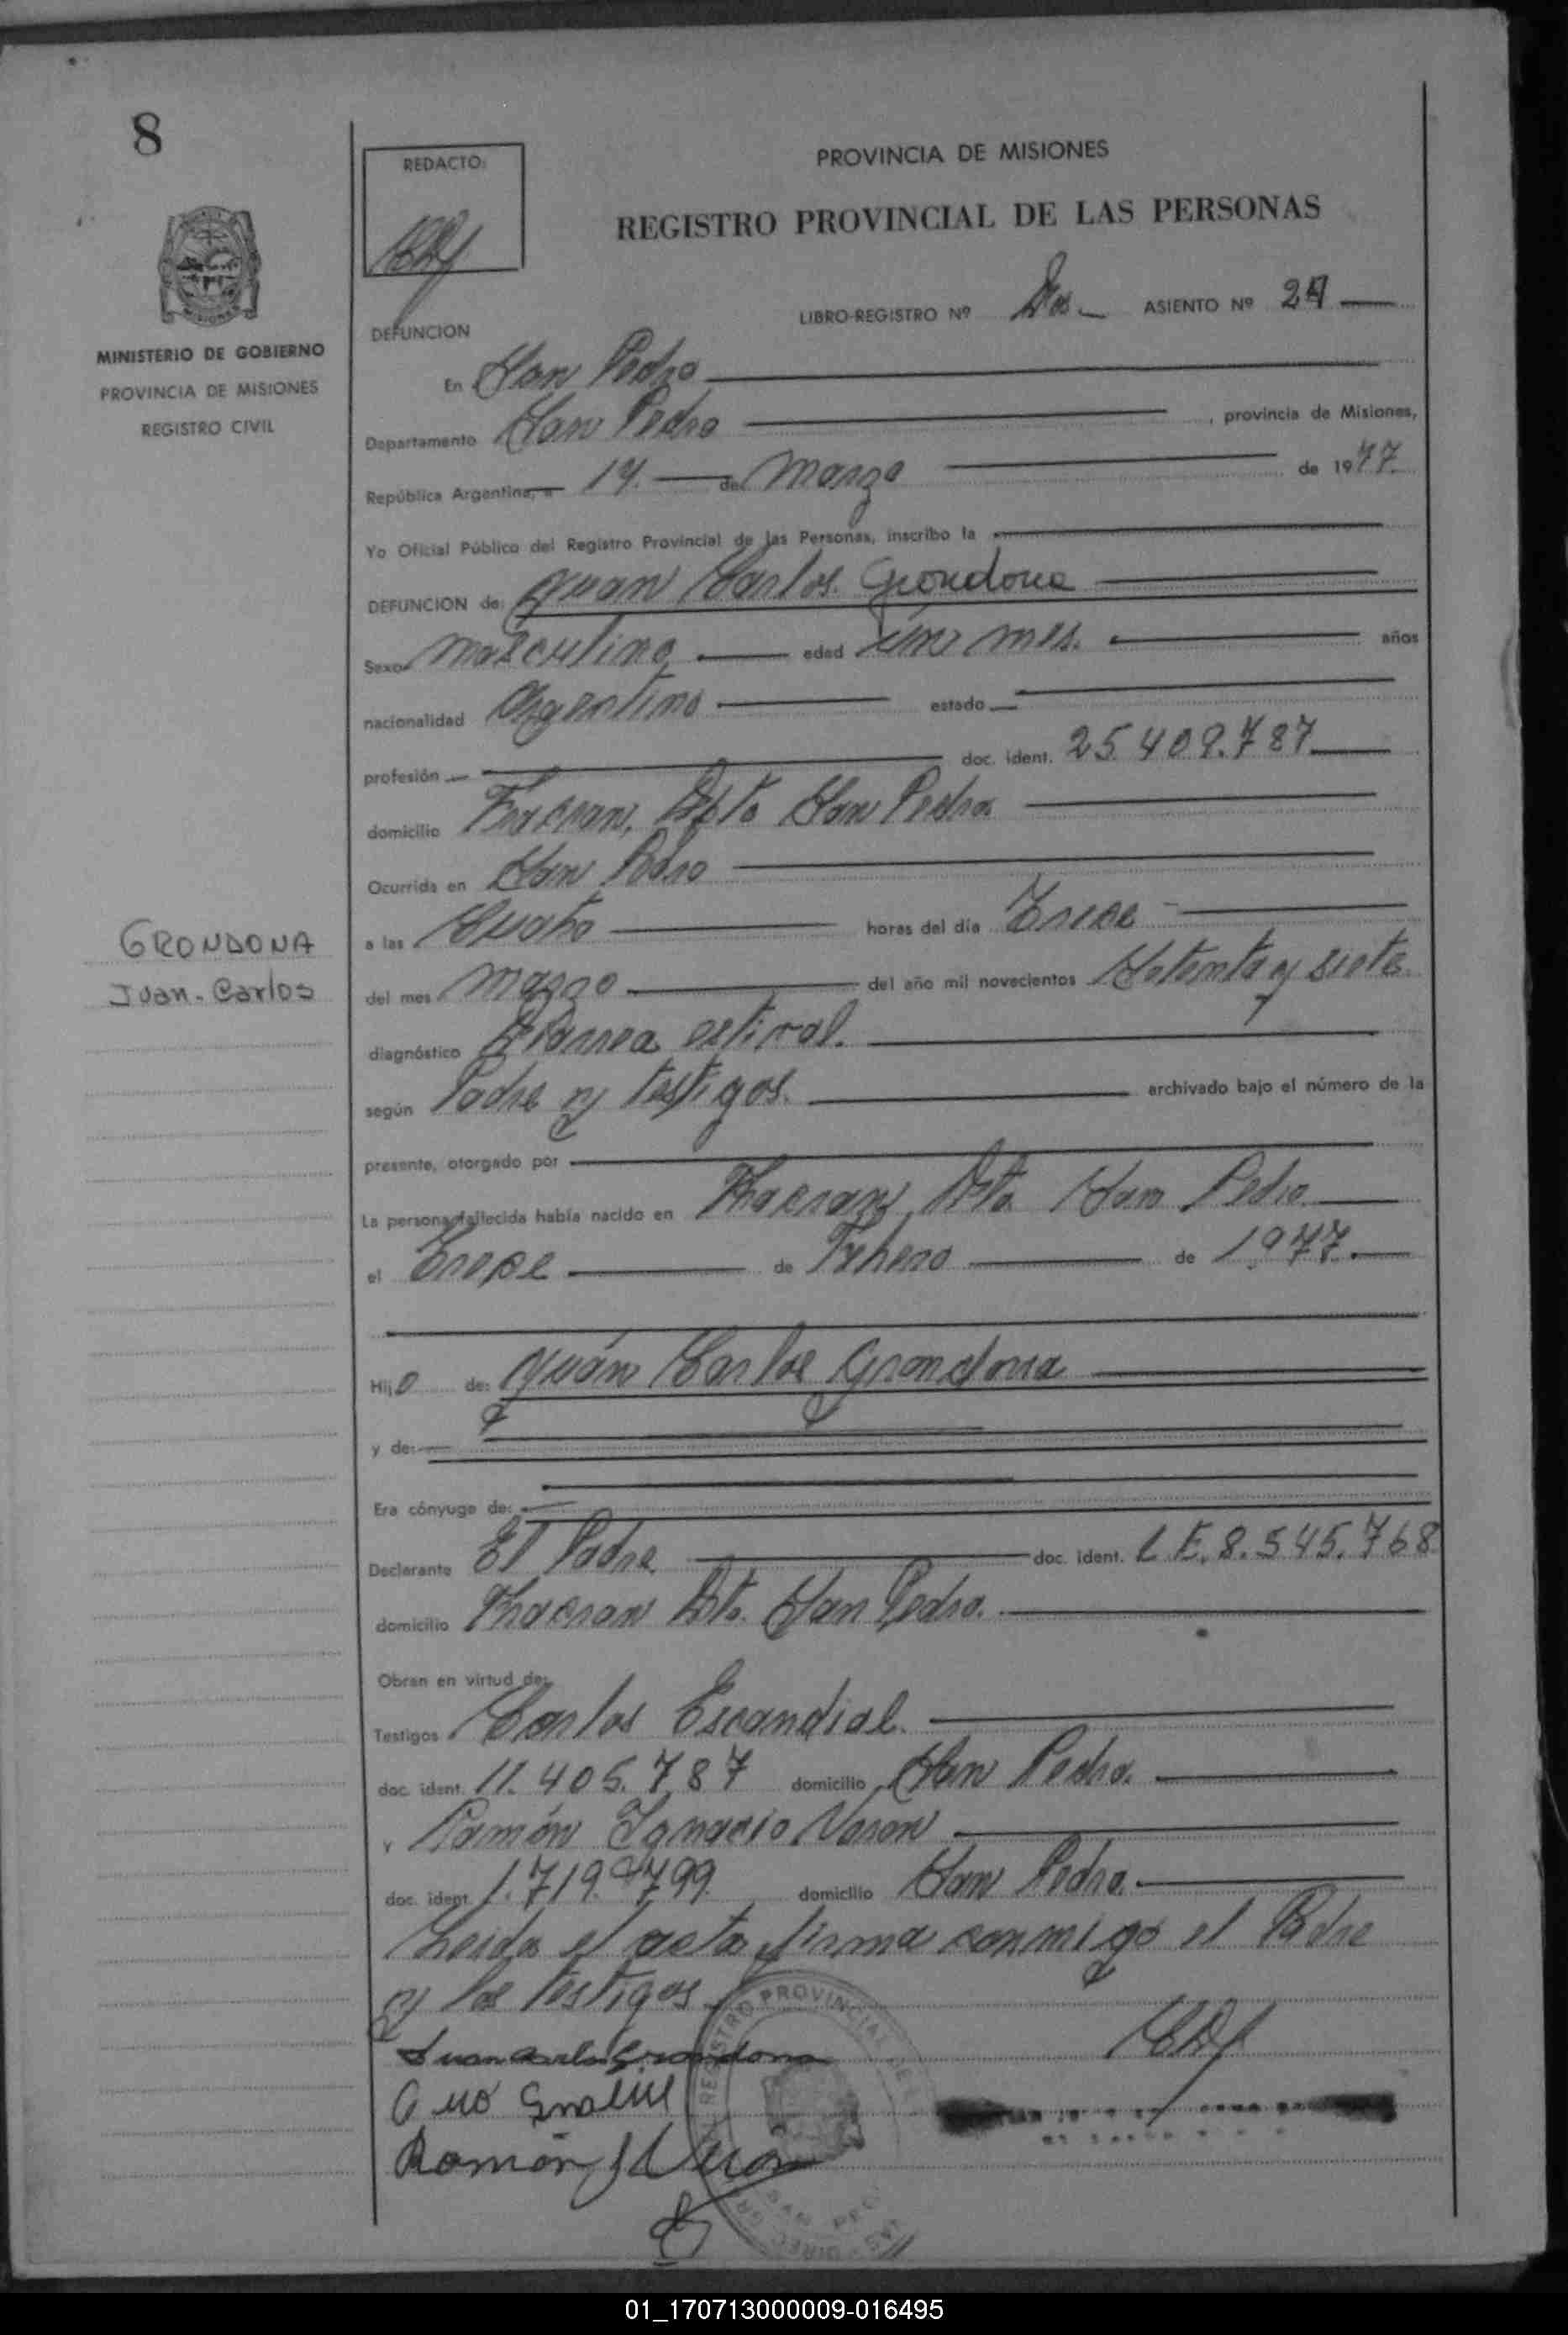 8
REDACTO:
PROVINCIA DE MISIONES
REGISTRO PROVINCIAL DE LAS PERSONAS
LIBRO-REGISTRO Nº Dos ASIENTO Nº 24
DEFUNCION
MINISTERIO DE GOBIERNO
PROVINCIA DE MISIONES
REGISTRO CIVIL
En San Pedro
Departamento San Pedro, provincia de Misiones,
República Argentina, a 14 de Marzo de 1977
Yo Oficial Público del Registro Provincial de las Personas, inscribo la
DEFUNCION de: Juan Carlos Grondona
Sexo masculino edad un mes. años
nacionalidad Argentino estado
profesión doc. ident. 25.409.787
domicilio Fracran, Dpto San Pedro
Ocurrida en San Pedro
GRONDONA
Juan-Carlos
a las Cuatro horas del día Trece
del mes marzo del año mil novecientos Setenta y siete
diagnóstico Diarrea estival.
según Padre y testigos. archivado bajo el número de la
presente, otorgado por
La persona fallecida había nacido en Fracran, Dto. San Pedro
el Trece de Febrero de 1977.
Hijo de: Juán Carlos Grondona
y de:
Era cónyuge de:
Declarante El Padre doc. ident. L.E. 8.545.768
domicilio Fracran Dto. San Pedro.
Obran en virtud de:
Testigos Carlos Escandial.
doc. ident. 11.405.787 domicilio San Pedro.
y Ramón Ignacio
doc. ident. 1.719.799 domicilio San Pedro.
Leida el acta firma conmigo el Padre
y los testigos
Juan Carlos Grondona
Ramón
REGISTRO PROVINCIAL DE
01_170713000009-016495